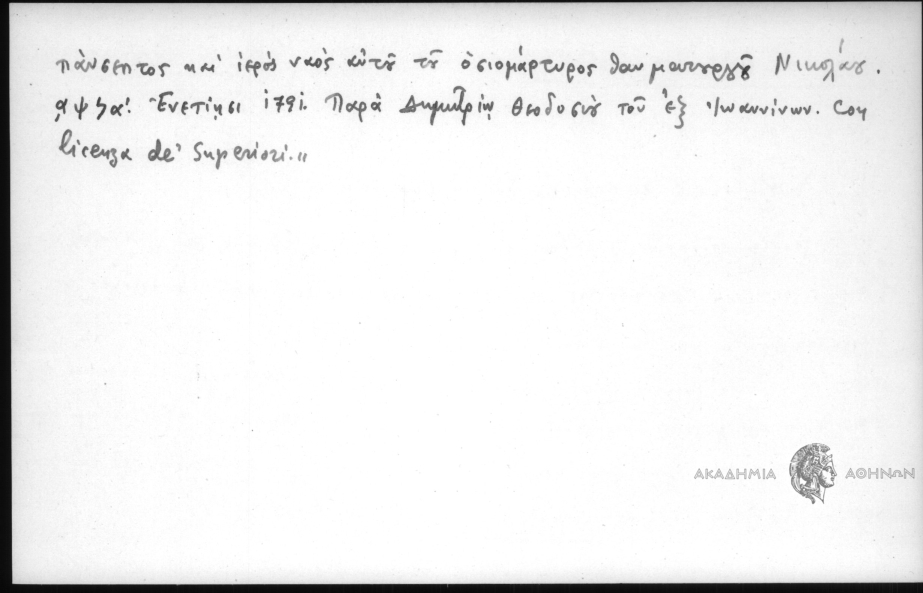 πάνσεπτος καὶ ἱερὸς ναὸς αὐτοῦ τοῦ ὁσιομάρτυρος θαυματουργοῦ Νικολάου.
αψϟα! Ἐνετίῃσι 1791. Παρὰ Δημητρίῳ Θεοδοσίου τοῦ ἐξ Ἰωαννίνων. Con
licenza de' Superiori."
ΑΚΑΔΗΜΙΑ ΑΘΗΝΩΝ